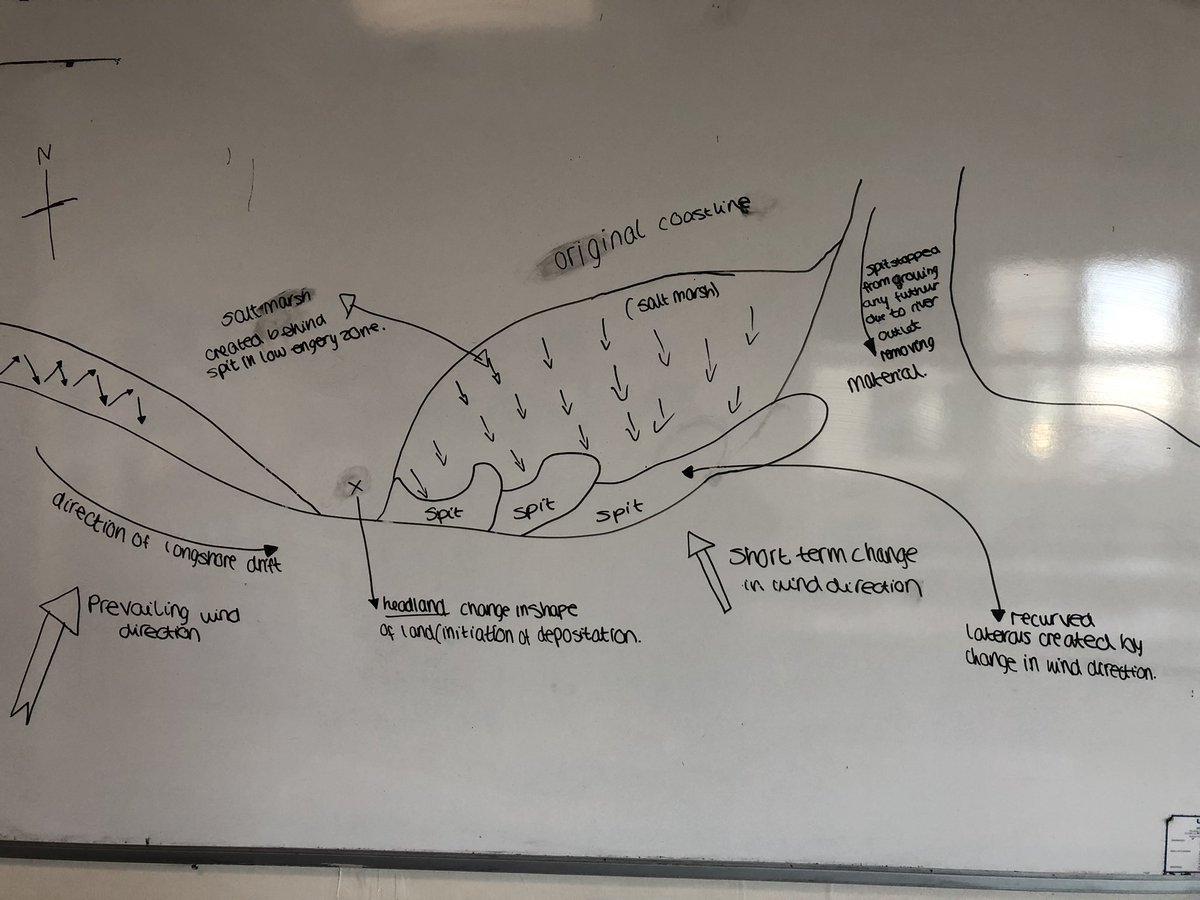 N
original coastline
salt marsh
created behind
spit in low engery zone.
(salt marsh)
spit stopped
from growing
any further
due to river
outlet
removing
material.
direction of longshore drift
Prevailing wind
direction
x
spit
spit
spit
headland change in shape
of land (initiation of depositation.
Short term change
in wind direction
recurved
laterals created by
change in wind direction.